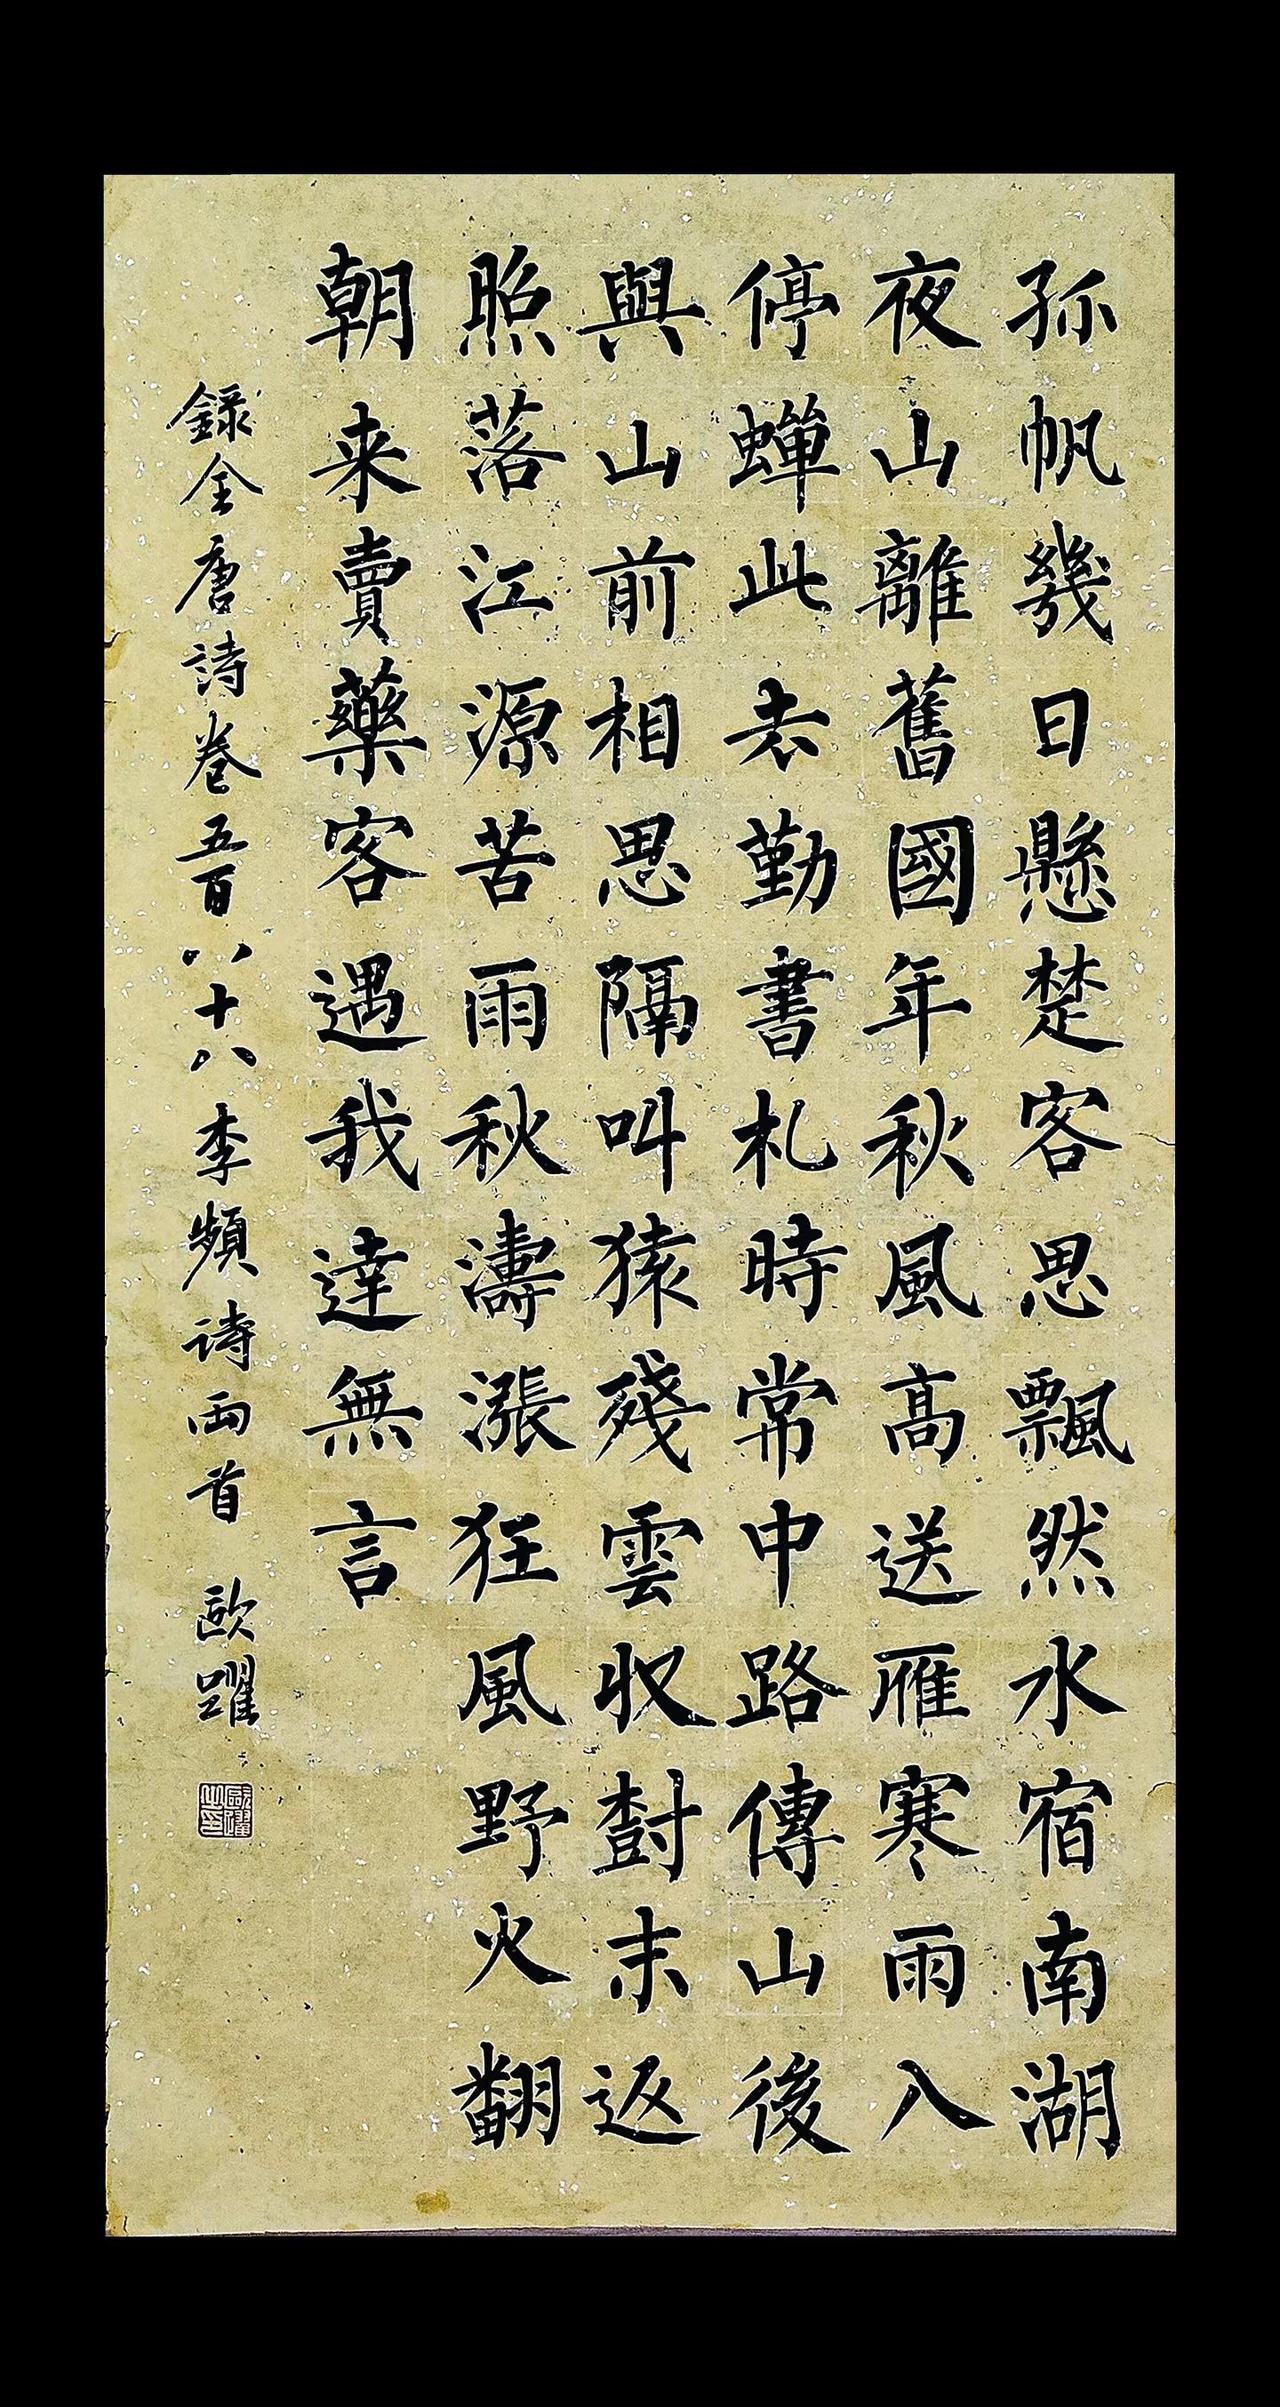 孤帆幾日懸楚客思飄然水宿南湖
夜山離舊國年秋風高送雁寒雨入
停蟬此去勤書札時常中路傳山後
與山前相思隔叫猿殘雲收樹末返
照落江源苦雨秋濤漲狂風野火翻
朝来賣藥客遇我達無言
錄全唐詩卷五百八十八李頻詩両首 歐躍
歐躍之印